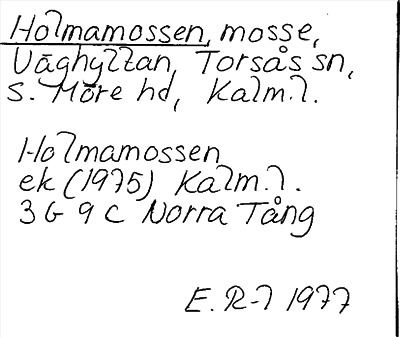 Holmamossen, mosse,
Våghyltan, Torsås sn,
S. Möre hd, Kalm.l.
Holmamossen
ek (1975) Kalm.l.
3 G 9 c Norra Tång
E. R-l 1977